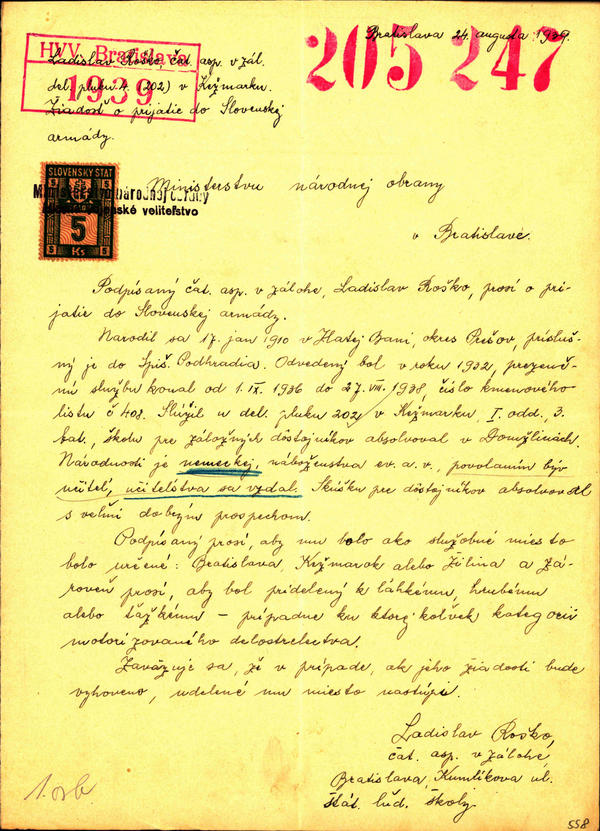 Bratislava 24. augusta 1939.
205 247
HVV. Bratislava
1939
Ladislav Roško, čat. asp. v zál.
del. pluku 4. (202) v Kežmarku.
Žiadosť o prijatie do Slovenskej
armády.
SLOVENSKÝ ŠTÁT
5
Ks
Ministerstvo národnej obrany
veliteľstvo
Ministerstvu národnej obrany
v Bratislave.
Podpísaný čat. asp. v zálohe, Ladislav Roško, prosí o pri-
jatie do Slovenskej armády.
Narodil sa 17. jan 1910 v Zlatej Bani, okres Prešov, prísluš-
ný je do Spiš. Podhradia. Odvedený bol v roku 1932, prezenč-
nú službu konal od 1. IX. 1936 do 27. VIII. 1938, číslo kmenového
listu č 408. Slúžil u del. pluku 202 v Kežmarku, I. odd., 3.
bat., školu pre záložných dôstojníkov absolvoval v Domžliciach.
Národnosti je nemeckej, náboženstva ev. a. v., povolaním býv.
učiteľ, učiteľstva sa vzdal. Skúšku pre dôstojníkov absolvoval
s veľmi dobrým prospechom.
Podpísaný prosí, aby mu bolo ako služobné miesto
bolo určené: Bratislava, Kežmarok alebo Žilina a zá-
roveň prosí, aby bol pridelený k ľahkému, hrubému
alebo ťažkému – prípadne ku ktorej koľvek kategorii
motorizovaného delostrelectva.
Zaväzuje sa, že v prípade, ak jeho žiadosti bude
vyhoveno, udelené mu miesto nastúpi.
Ladislav Roško,
čat. asp. v zálohe,
Bratislava, Kumlíkova ul.
štát. ľud. školy.
558